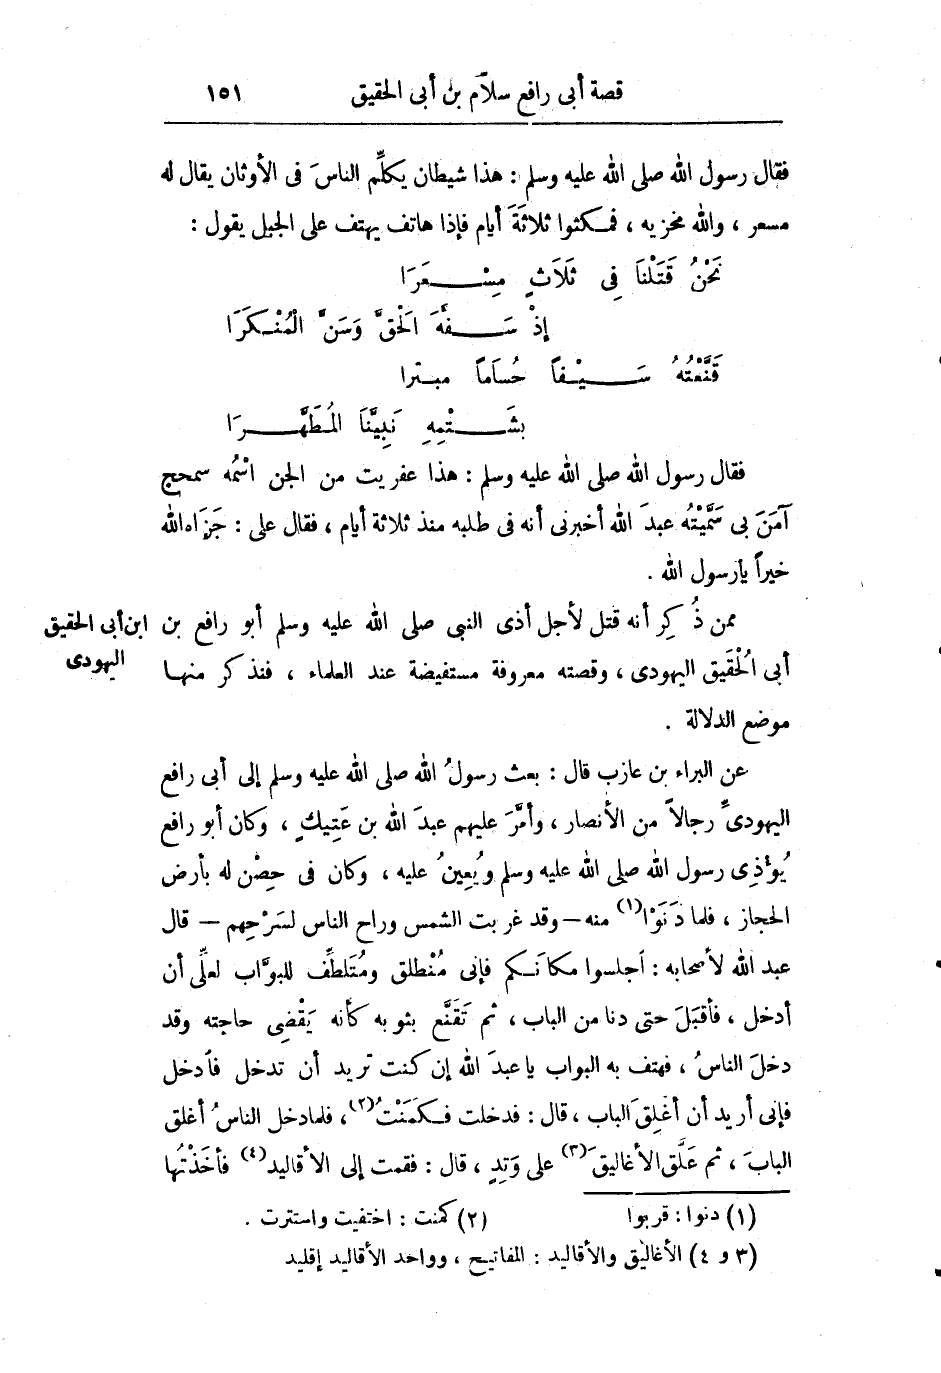 قصة أبى رافع سلاّم بن أبى الحقيق ١٥١
فقال رسول الله صلى الله عليه وسلم : هذا شيطان يكلِّم الناسَ فى الأوثان يقال له
مسعر ، والله مخزيه ، فمكثوا ثلاثَةَ أيام فإذا هاتف يهتف على الجبل يقول :
نَحْنُ قَتَلْنَا فِى ثَلَاثٍ مِسْعَرَا
إذْ سَفَّهَ الَحْقَّ وَسَنَّ الْمُنْكَرَا
قَنَّعْتُهُ سَيْفاً حُسَاماً مبترا
بشَتْمِهِ نَبِيَّنَا المُطَهَّرَا
فقال رسول الله صلى الله عليه وسلم : هذا عفريت من الجن اسْمُه سمحج
آمَنَ بى سَمَّيْتُه عبدَ الله أخبرنى أنه فى طلبه منذ ثلاثة أيام ، فقال على : جَزَاه الله
خيراً يارسول الله .
ممن ذُكِر أنه قتل لأجل أذى النبى صلى الله عليه وسلم أبو رافع بن
ابن أبى الحقيق
اليهودى
أبى الُحْقَيق اليهودى ، وقصته معروفة مستفيضة عند العلماء ، فنذكر منها
موضع الدلالة .
عن البراء بن عازب قال : بعث رسولُ الله صلى الله عليه وسلم إلى أبى رافع
اليهودىِّ رجالاً من الأنصار ، وأمَّرَ عليهم عبدَ الله بن عَتِيكٍ ، وكان أبو رافع
يُوْذِى رسول الله صلى الله عليه وسلم ويُعِينُ عليه ، وكان فى حِصْن له بأرض
الحجاز ، فلما دَنَوْا(١) منه – وقد غربت الشمس وراح الناس لسَرْحِهم – قال
عبد الله لأصحابه : اجلسوا مكانكم فإنى مُنْطلق ومُتَلطِّف للبوَّاب لعلِّى أن
أدخل ، فأقبَلَ حتى دنا من الباب ، ثم تَقَنَّع بثوبه كأنه يَقْضِى حاجته وقد
دخلَ الناسُ ، فهتف به البواب يا عبدَ الله إن كنت تريد أن تدخل فادخل
فإنى أريد أن أغلِقَ الباب ، قال : فدخلت فكَمَنْتُ(٢) ، فلما دخل الناسُ أغلق
البابَ ، ثم عَلَّق الأغاليقَ(٣) على وَتِدٍ ، قال : فقمت إلى الأقاليد(٤) فأخَذْتُها
(١) دنوا : قربوا (٢) كمنت : اختفيت واستترت .
(٣ و ٤) الأغاليق والأقاليد : المفاتيح ، وواحد الأقاليد إقليد